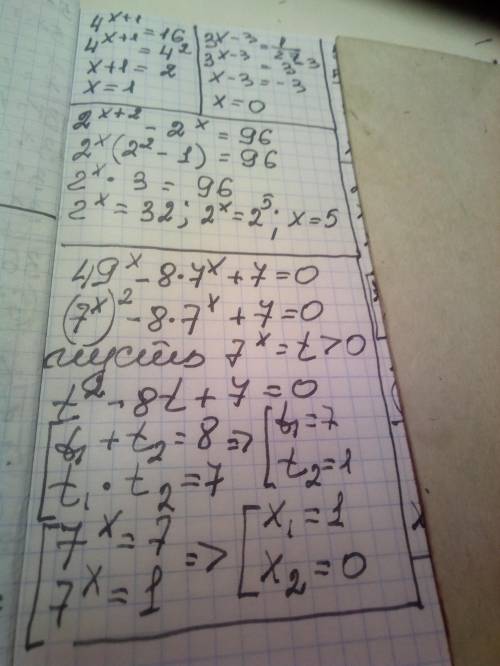 4^{x+1} = 16
4^{x+1} = 4^2
x+1 = 2
x = 1
3^{x-3} = \frac{1}{27}
3^{x-3} = 3^{-3}
x-3 = -3
x = 0
2^{x+2} - 2^x = 96
2^x(2^2 - 1) = 96
2^x · 3 = 96
2^x = 32; 2^x = 2^5; x = 5
49^x - 8·7^x + 7 = 0
(7^x)^2 - 8·7^x + 7 = 0
пусть 7^x = t > 0
t^2 - 8t + 7 = 0
[t_1 + t_2 = 8 => [t_1 = 7
t_1 · t_2 = 7 t_2 = 1
[7^x = 7 => [x_1 = 1
7^x = 1 x_2 = 0